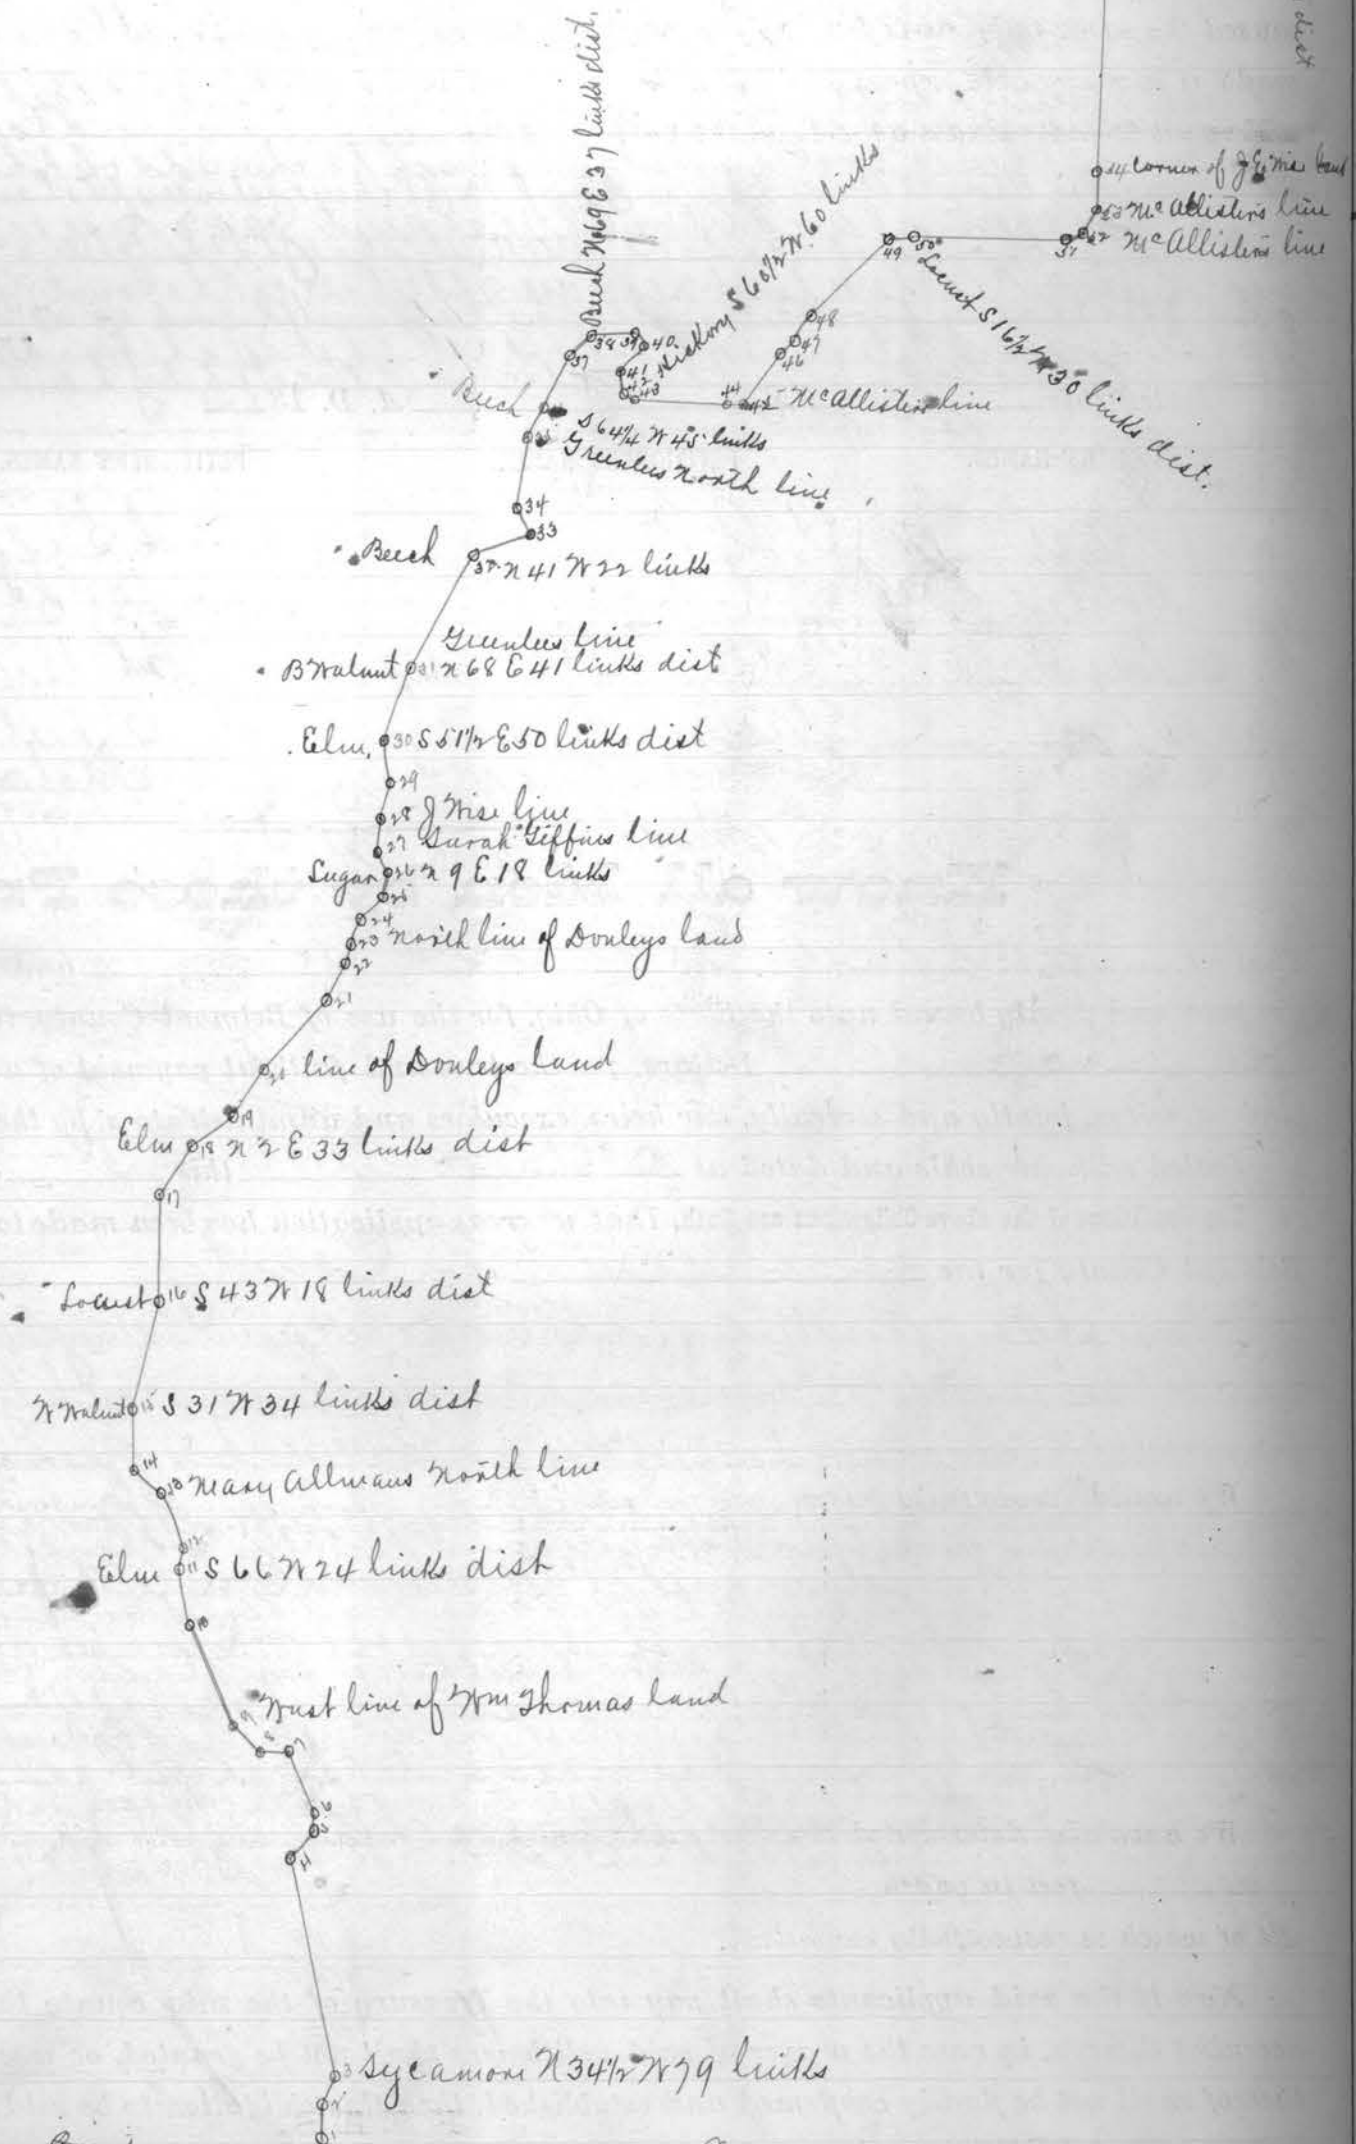 dist
Beech N69E 37 links dist.
54 Corner of J E Wise land
53 McAllisters line
52 McAllisters line
51
50
49
Locust S 16 1/2 W 30 links dist.
48
47
46
45 McAllisters line
44
43 Hickory S 60 1/2 W 60 links
42
41
40
39
38
37
Beech
S 64 1/4 W 45 links
35 Greenlees North line
34
33
Beech 32 N 41 W 22 links
Greenlees line
B Walnut 31 N 68 E 41 links dist
Elm 30 S 51 1/2 E 50 links dist
29
28 J Wise line
27 Sarah Giffins line
Sugar 26 N 9 E 18 links
25
24
23 North line of Donleys land
22
21
20 line of Donleys land
19
Elm 18 N 2 E 33 links dist
17
Locust 16 S 43 W 18 links dist
W Walnut 15 S 31 W 34 links dist
14
13 Mary Allmans North line
12
Elm 11 S 66 W 24 links dist
10
9 West line of Wm Thomas land
8
7
6
5
4
3 Sycamore N 34 1/2 W 79 links
2
1